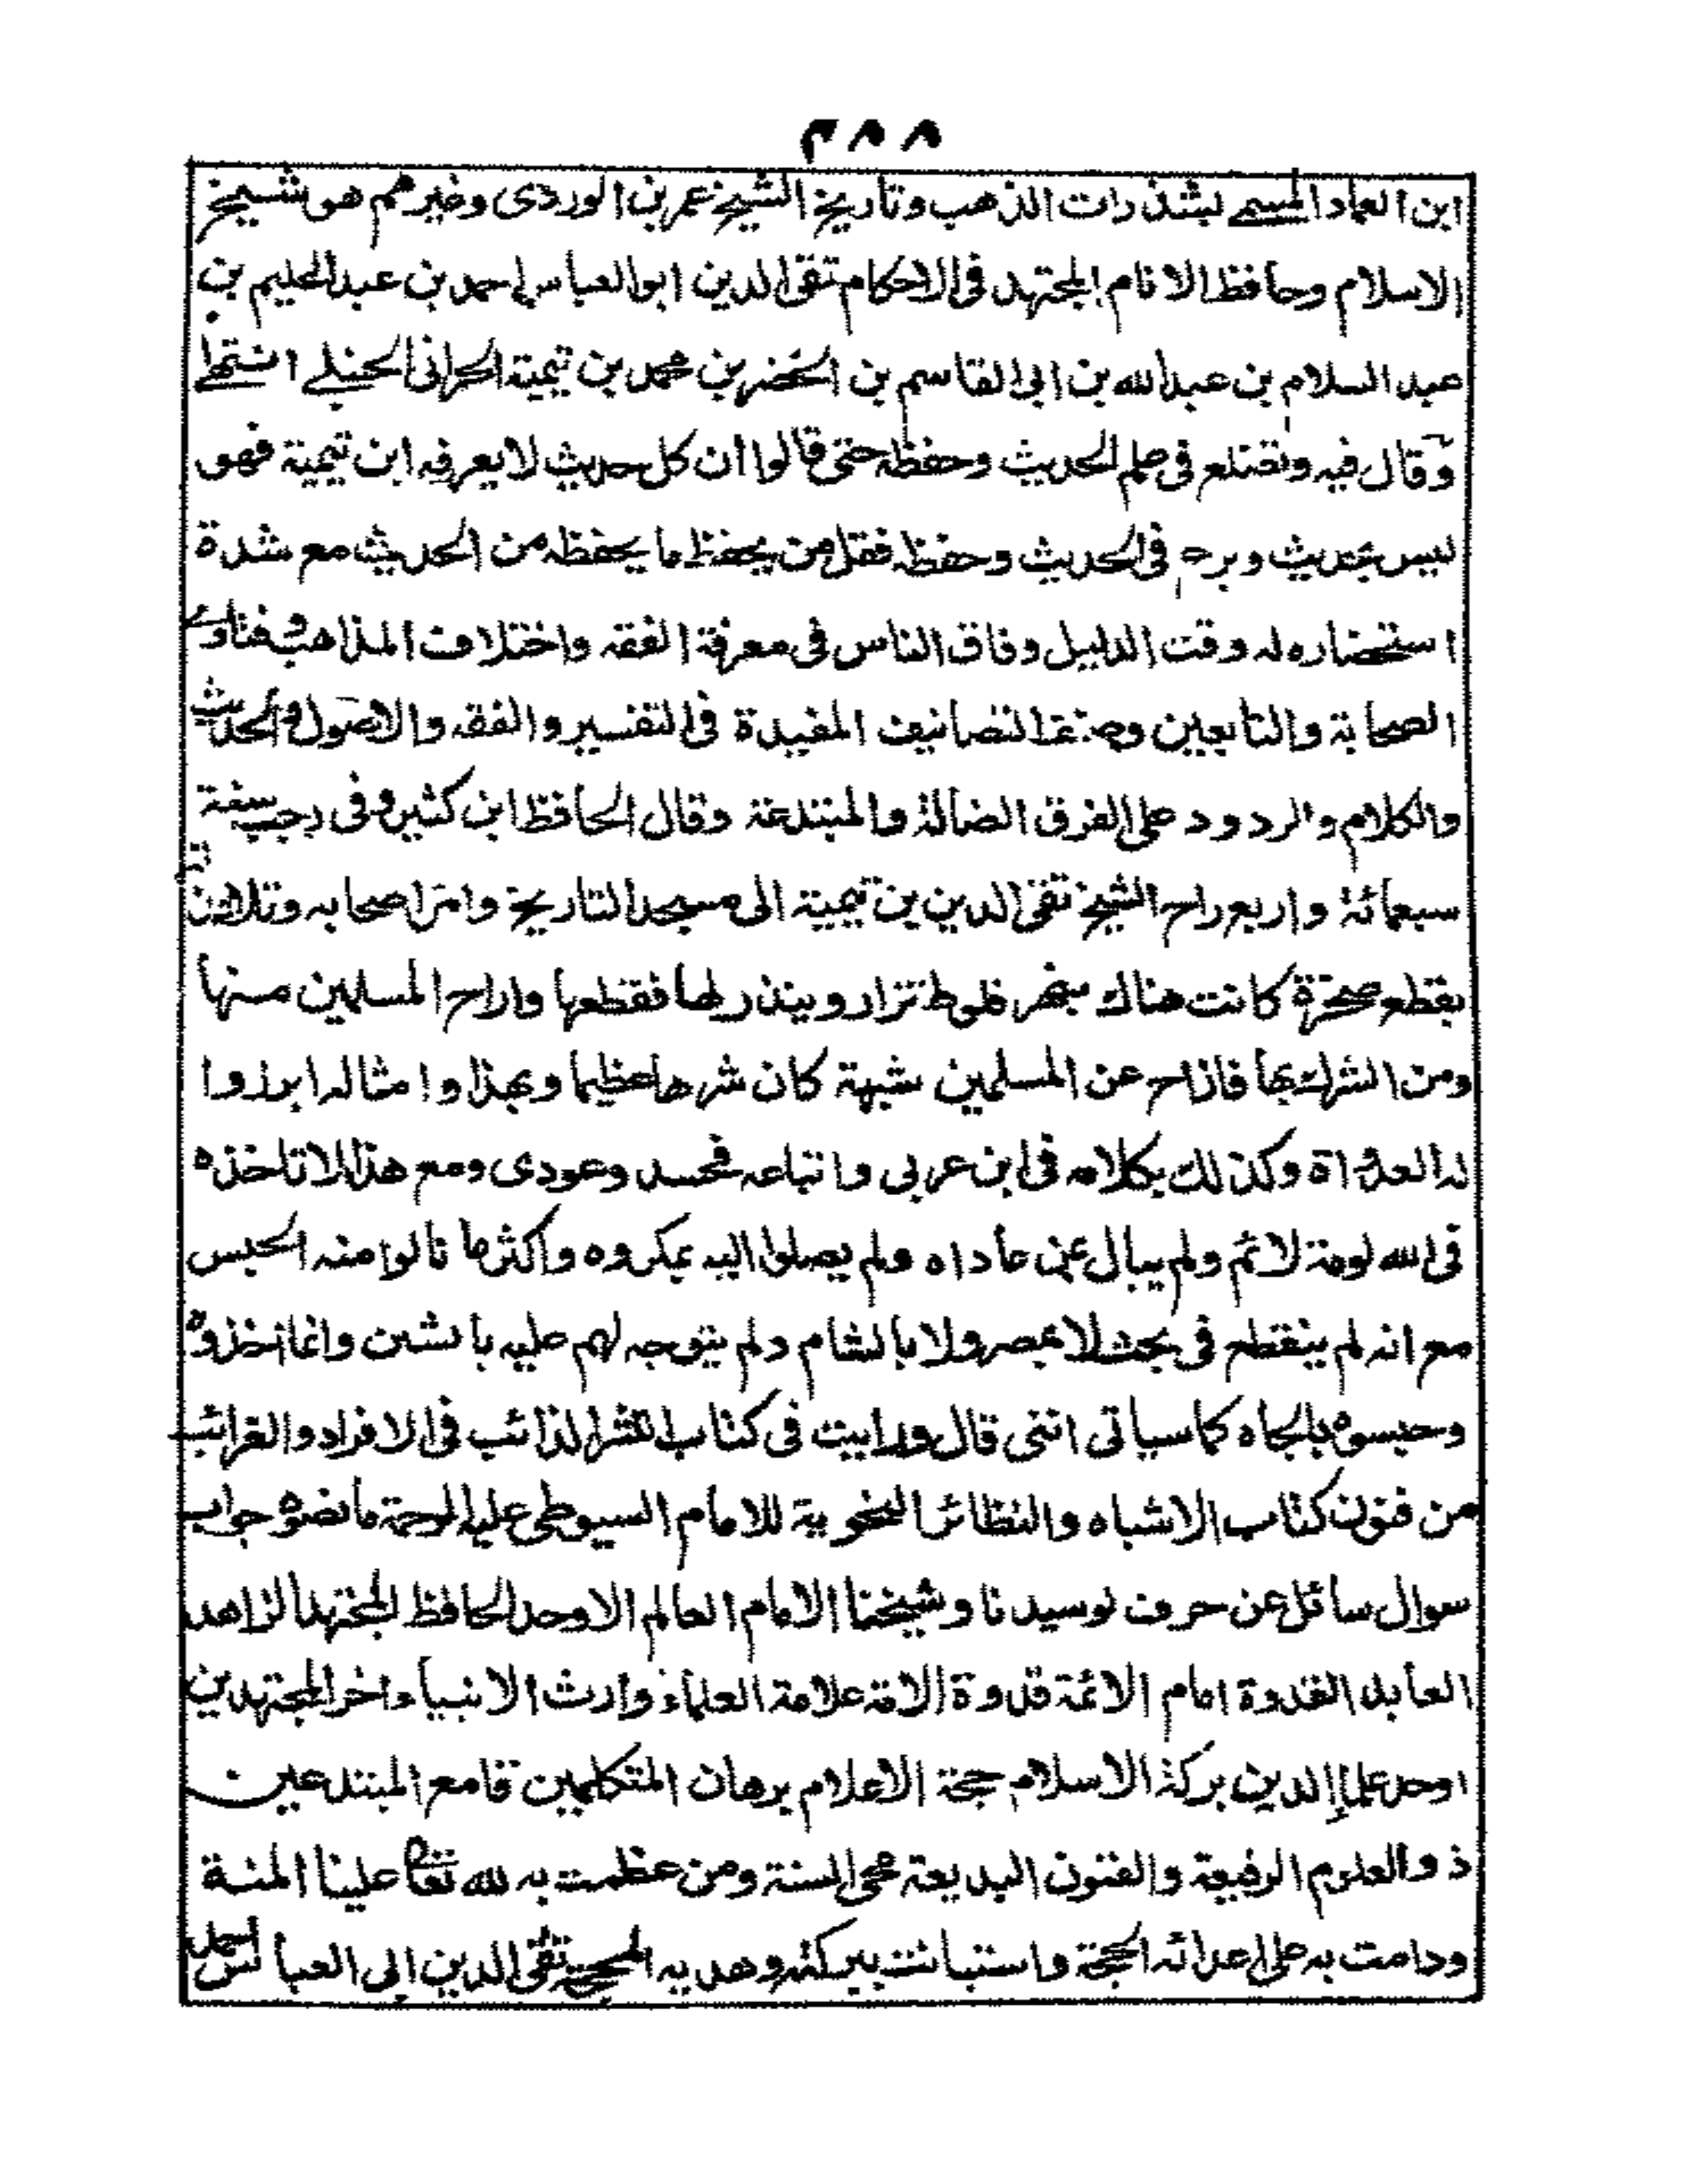 ٣٨٨
ابن العماد المسمى بشذرات الذهب وتاريخ الشيخ عمر بن الوردى وغيرهم هو شيخ
الاسلام وحافظ الانام المجتهد فى الاحكام تقى الدين ابو العباس احمد بن عبد الحليم بن
عبد السلام بن عبد الله بن ابى القاسم بن الخضر بن محمد بن تيمية الحرانى الحنبلى انتهى
وقال فيه وتضلع فى علم الحديث وحفظه حتى قالوا ان كل حديث لا يعرفه ابن تيمية فهو
ليس بحديث وبرع فى الحديث وحفظه فقل من يحفظ ما يحفظه من الحديث مع شدة
استحضاره له وقت الدليل وفاق الناس فى معرفة الفقه واختلاف المذاهب وفتاوى
الصحابة والتابعين وصنف التصانيف المفيدة فى التفسير والفقه والاصول والحديث
والكلام والردود على الفرق الضالة والمبتدعة وقال الحافظ ابن كثير وفى رجب سنة
سبعمائة واربع راح الشيخ تقى الدين بن تيمية الى مسجد التاريخ وامر اصحابه وتلامذته
بقطع صخرة كانت هناك بنهر قلوط تزار وينذر لها فقطعها واراح المسلمين منها
ومن الشرك بها فازاح عن المسلمين شبهة كان شرها عظيما وبهذا وامثاله ابرزوا
له العداة وكذلك بكلامه فى ابن عربى واتباعه فحسد وعودى ومع هذا لا تاخذه
فى الله لومة لائم ولم يبال عمن عاداه ولم يصلوا اليه بمكروه واكثر ما نالوا منه الحبس
مع انه لم ينقطع فى بحث لا بمصر ولا بالشام ولم يتوجه لهم عليه ما يشين وانما اخذوه
وحبسوه بالجاه كما سياتى انتهى قال ورايت فى كتاب النشر الذائب فى الافراد والغرائب
من فنون كتاب الاشباه والنظائر النحوية للامام السيوطى عليه الرحمة ما نصه جواب
سوال سائل عن حرف لو سيدنا وشيخنا الامام العالم الاوحد الحافظ المجتهد الزاهد
العابد القدوة امام الائمة قدوة الامة علامة العلماء وارث الانبياء اخر المجتهدين
اوحد علماء الدين بركة الاسلام حجة الاعلام برهان المتكلمين قامع المبتدعين
ذو العلوم الرفيعة والفنون البديعة محى السنة ومن عظمت به لله تعالى علينا المنة
ودامت به على اعدائه الحجة واستبانت ببركته وهديه المحجة تقى الدين ابى العباس احمد